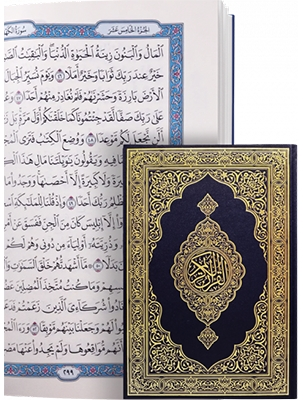 الجُزْءُ الخَامِسَ عَشَرَ سُورَةُ الكَهْفِ
ٱلۡمَالُ وَٱلۡبَنُونَ زِينَةُ ٱلۡحَيَوٰةِ ٱلدُّنۡيَاۖ وَٱلۡبَٰقِيَٰتُ
خَيۡرٌ عِندَ رَبِّكَ ثَوَابٗا وَخَيۡرٌ أَمَلٗا ٤٦ وَيَوۡمَ نُسَيِّرُ ٱلۡجِبَالَ
ٱلۡأَرۡضَ بَارِزَةٗ وَحَشَرۡنَٰهُمۡ فَلَمۡ نُغَادِرۡ مِنۡهُمۡ أَحَدٗا ٤٧
عَلَىٰ رَبِّكَ صَفّٗا لَّقَدۡ جِئۡتُمُونَا كَمَا خَلَقۡنَٰكُمۡ أَوَّلَ مَرَّةِۭۚ بَلۡ
أَلَّن نَّجۡعَلَ لَكُم مَّوۡعِدٗا ٤٨ وَوُضِعَ ٱلۡكِتَٰبُ فَتَرَى
فِيهِ وَيَقُولُونَ يَٰوَيۡلَتَنَا مَالِ هَٰذَا
وَلَا كَبِيرَةً إِلَّآ أَحۡصَىٰهَاۚ
وَإِذۡ قُلۡنَا لِلۡمَلَٰٓئِكَةِ
إِلَّآ إِبۡلِيسَ كَانَ مِنَ ٱلۡجِنِّ فَفَسَقَ عَنۡ
وَذُرِّيَّتَهُۥٓ أَوۡلِيَآءَ مِن دُونِي وَهُمۡ
مَّآ أَشۡهَدتُّهُمۡ خَلۡقَ
وَمَا كُنتُ مُتَّخِذَ ٱلۡمُضِلِّينَ
شُرَكَآءِيَ ٱلَّذِينَ زَعَمۡتُمۡ
لَهُمۡ وَجَعَلۡنَا بَيۡنَهُم مَّوۡبِقٗا
أَنَّهُم مُّوَاقِعُوهَا وَلَمۡ يَجِدُواْ عَنۡهَا
٢٩٩
القرآن الكريم